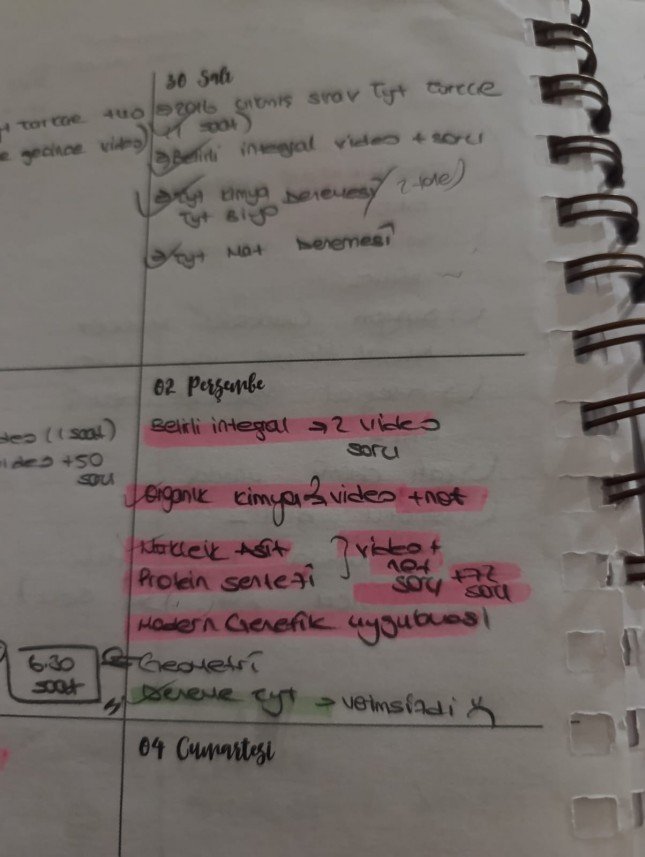 30 Salı
→ 2016 çıkmış sınav Tyt Türkçe
(1 saat)
→ Belirli integral video + soru
→ Tyt kimya Denemesi
Tyt Biyo
→ Tyt Mat Denemesi
02 Perşembe
deo (1 saat)
ideo +50
soru
Belirli integral → 2 video
soru
Organik kimya 2 video + not
Nükleik Asit } video +
not
Protein sentezi
soru +72
soru
Modern Genetik uygulaması
6.30
saat
Geometri
Deneme Tyt → verimsizdi
04 Cumartesi